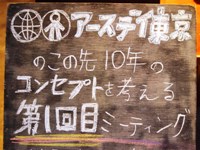 アースデイ東京
のこの先10年の
コンセプトを考える
第1回目ミーティング